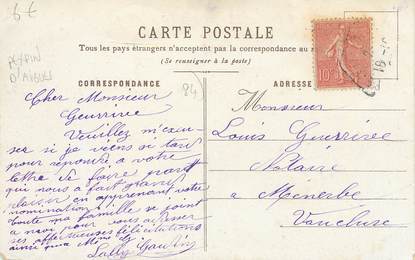 6€
PEYPIN
D'AIGUES
84
CARTE POSTALE
Tous les pays étrangers n'acceptent pas la correspondance au
(Se renseigner à la poste)
CORRESPONDANCE
ADRESSE
10
Cher Monsieur
Guerrivee
Veuillez m'excu-
ser si je viens si tard
pour répondre a votre
lettre de faire part
qui nous a fait grand
plaisir en apprenant votre
nomination
toute ma famille se joint
a moi pour vous adresser
ses affectueuses félicitations
ainsi qua Mme
Monsieur
Louis Guerrivee
Notaire
a Menerbe
Vaucluse